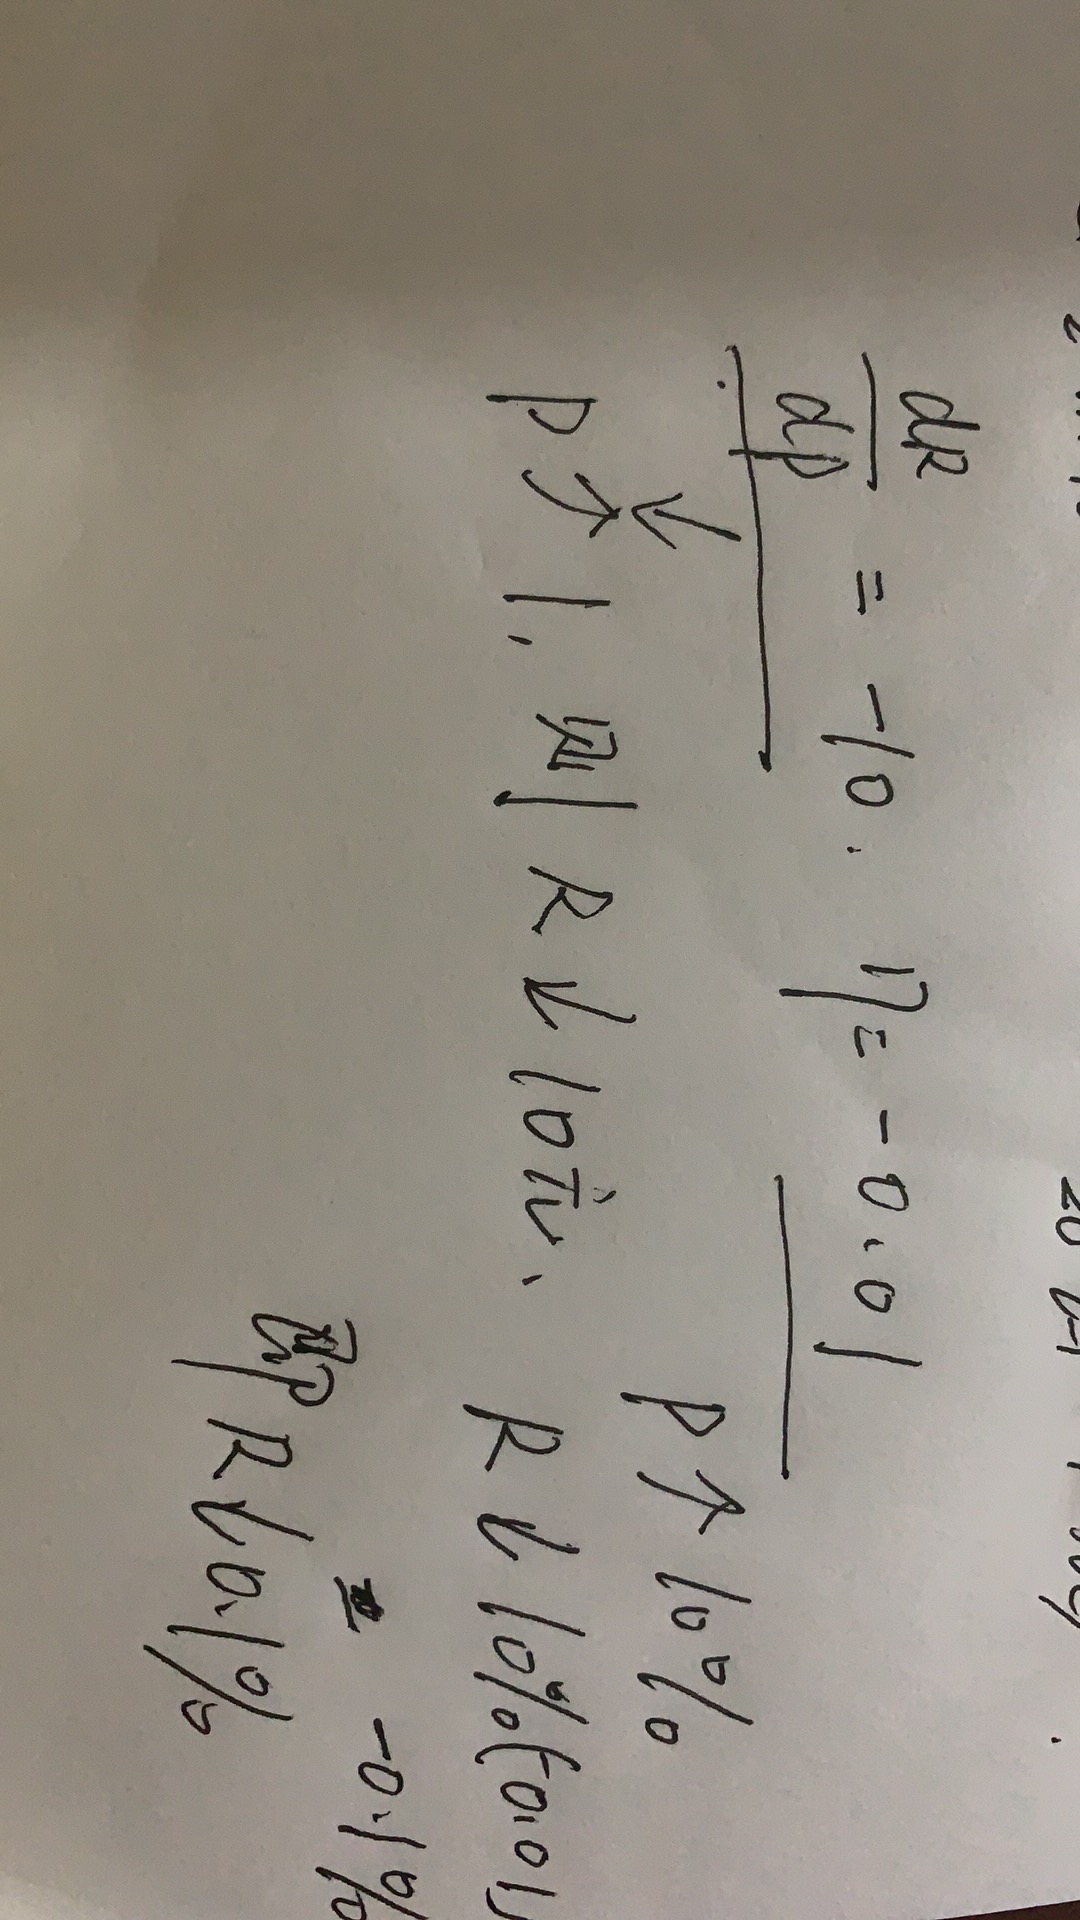 dR/dp = -10. η = -0.01
p↑1, 则 R↓10元.
p↑10%
R↓10%(-0.01)
= -0.1%
即 R↓0.1%